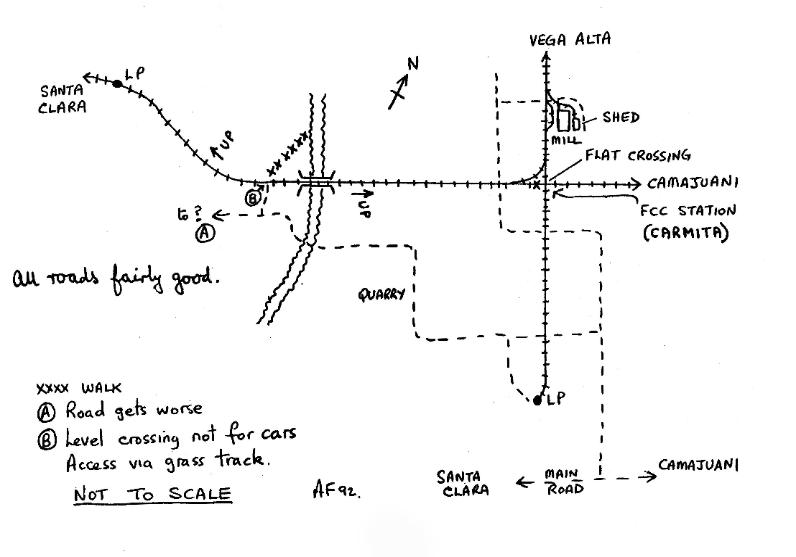 VEGA ALTA
LP
N
SANTA
CLARA
UP
SHED
MILL
FLAT CROSSING
xxxx
B
UP
CAMAJUANI
to?
A
FCC STATION
(CARMITA)
All roads fairly good.
QUARRY
xxxx WALK
LP
A Road gets worse
B Level crossing not for cars
Access via grass track.
NOT TO SCALE
AF 92.
SANTA
CLARA
MAIN
ROAD
CAMAJUANI